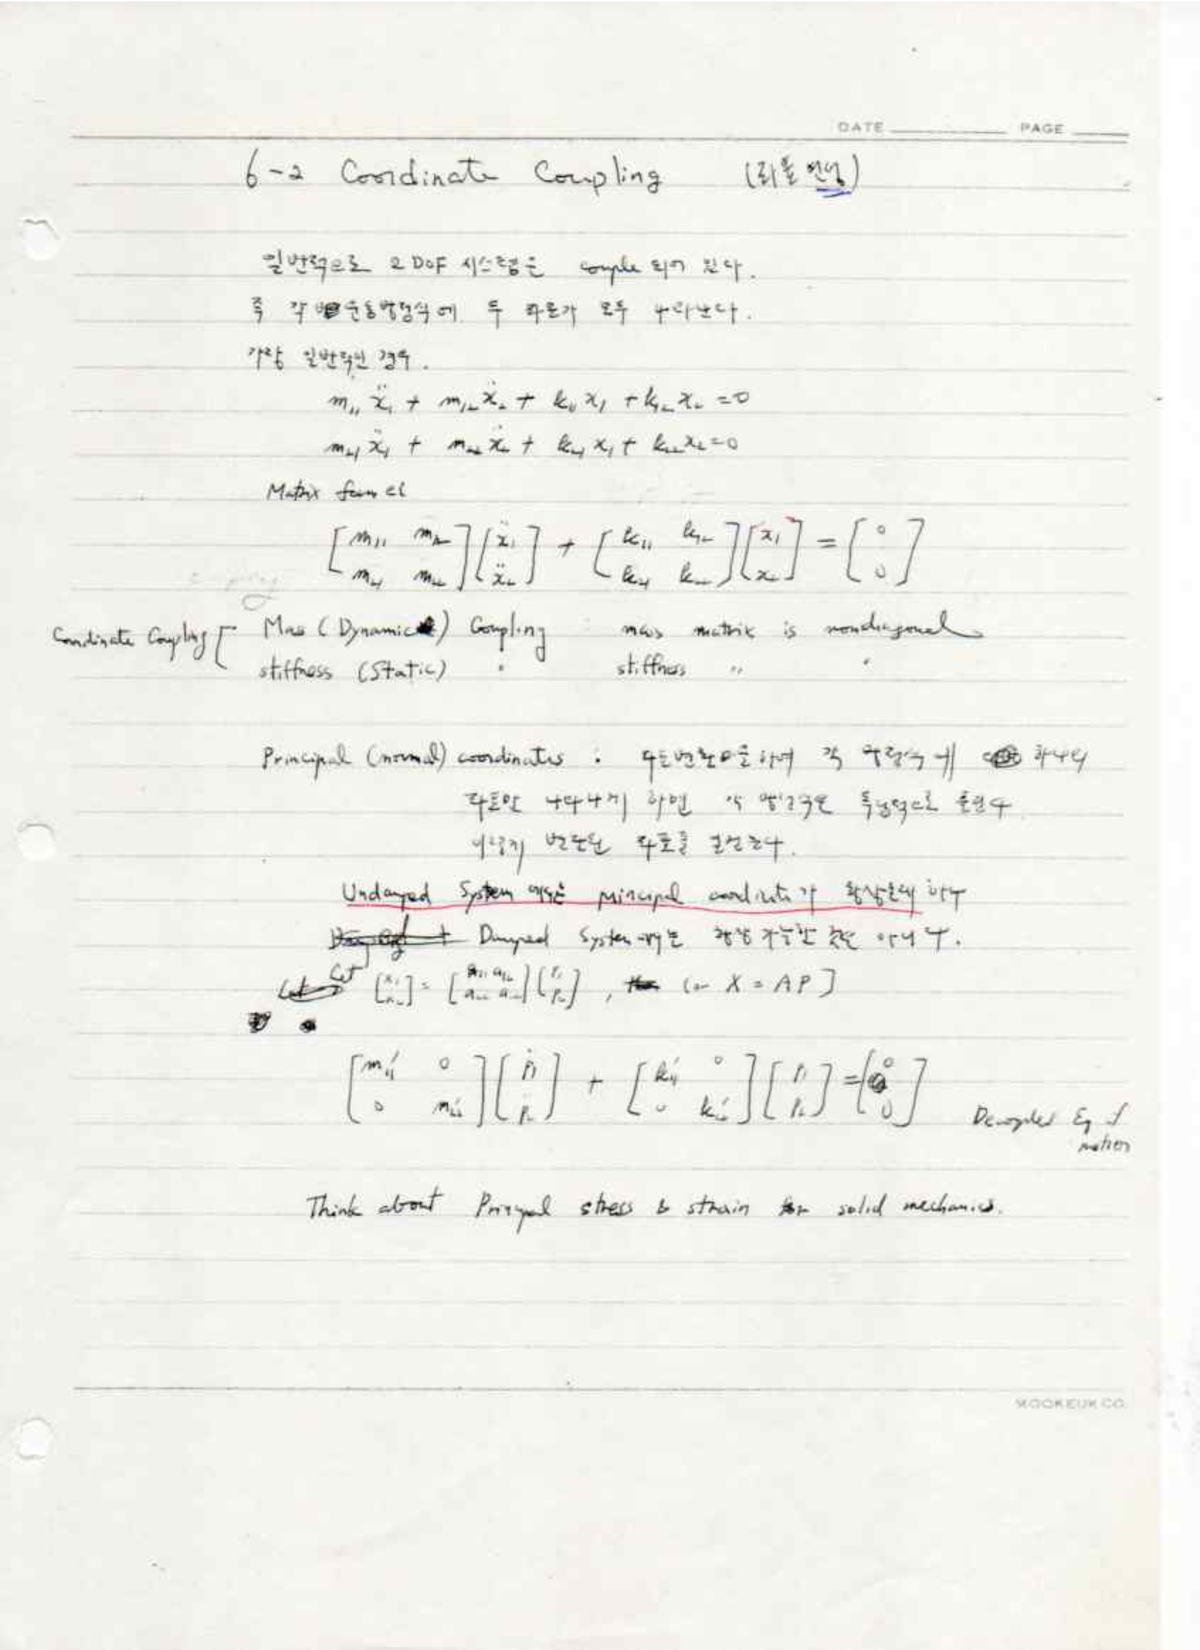 DATE PAGE
6-2 Coordinate Coupling (좌표 연성)
일반적으로 2 DOF 시스템은 couple 되어 있다.
즉 각 운동방정식에 두 좌표가 모두 나타난다.
가장 일반적인 경우.
m₁₁ẍ₁ + m₁₂ẍ₂ + k₁₁x₁ + k₁₂x₂ = 0
m₂₁ẍ₁ + m₂₂ẍ₂ + k₂₁x₁ + k₂₂x₂ = 0
Matrix form
[m₁₁ m₁₂ ; m₂₁ m₂₂] [ẍ₁ ; ẍ₂] + [k₁₁ k₁₂ ; k₂₁ k₂₂] [x₁ ; x₂] = [0 ; 0]
Coordinate Coupling [ Mass (Dynamic) Coupling : mass matrix is nondiagonal
stiffness (Static) " stiffness " "
Principal (normal) coordinates : 좌표변환을 하여 각 방정식에 하나의
좌표만 나타나게 하면 각 방정식은 독립적으로 풀린다
이렇게 변환된 좌표를
Undamped System 에서는 principal coordinate가 항상 하나
Damped System 에서는 항상 가능한 것은 아니다.
Let [x₁ ; x₂] = [a₁₁ a₁₂ ; a₂₁ a₂₂] [p₁ ; p₂] , (or X = AP)
[m₁₁′ 0 ; 0 m₂₂′] [p̈₁ ; p̈₂] + [k₁₁′ 0 ; 0 k₂₂′] [p₁ ; p₂] = [0 ; 0]
Decoupled Eq of
motion
Think about Principal stress & strain for solid mechanics.
MOOKEUK CO.